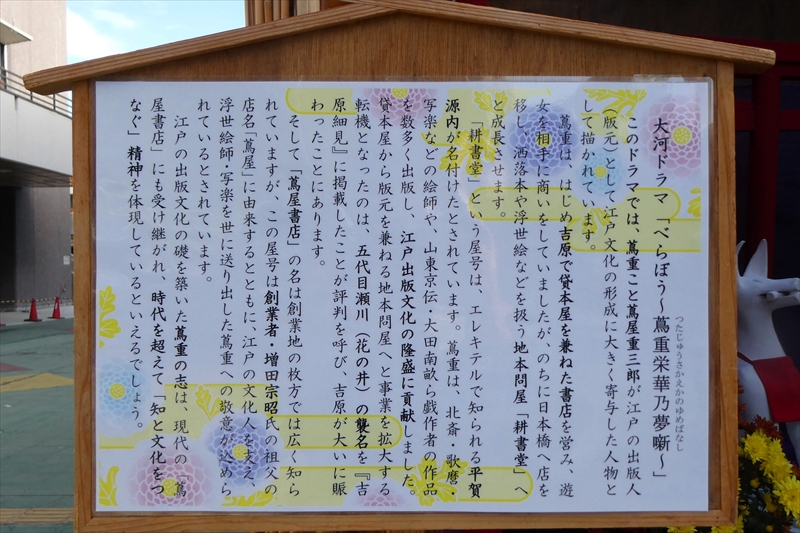 大河ドラマ「べらぼう～蔦重栄華乃夢噺～」
つたじゅうさかえかのゆめばなし
このドラマでは、蔦重こと蔦屋重三郎が江戸の出版人
（版元）として江戸文化の形成に大きく寄与した人物と
して描かれています。
蔦重は、はじめ吉原で貸本屋を兼ねた書店を営み、遊
女を相手に商いをしていましたが、のちに日本橋へ店を
移し、洒落本や浮世絵などを扱う地本問屋「耕書堂」へ
と成長させます。
「耕書堂」という屋号は、エレキテルで知られる平賀
源内が名付けたとされています。蔦重は、北斎・歌麿・
写楽などの絵師や、山東京伝・大田南畝ら戯作者の作品
を数多く出版し、江戸出版文化の隆盛に貢献しました。
貸本屋から版元を兼ねる地本問屋へと事業を拡大する
転機となったのは、五代目瀬川（花の井）の襲名を『吉
原細見』に掲載したことが評判を呼び、吉原が大いに賑
わったことにあります。
そして「蔦屋書店」の名は創業地の枚方では広く知ら
れていますが、この屋号は創業者・増田宗昭氏の祖父の
店名「蔦屋」に由来するとともに、江戸の文化人を支え、
浮世絵師・写楽を世に送り出した蔦重への敬意が込めら
れているとされています。
江戸の出版文化の礎を築いた蔦重の志は、現代の「蔦
屋書店」にも受け継がれ、時代を超えて「知と文化をつ
なぐ」精神を体現しているといえるでしょう。